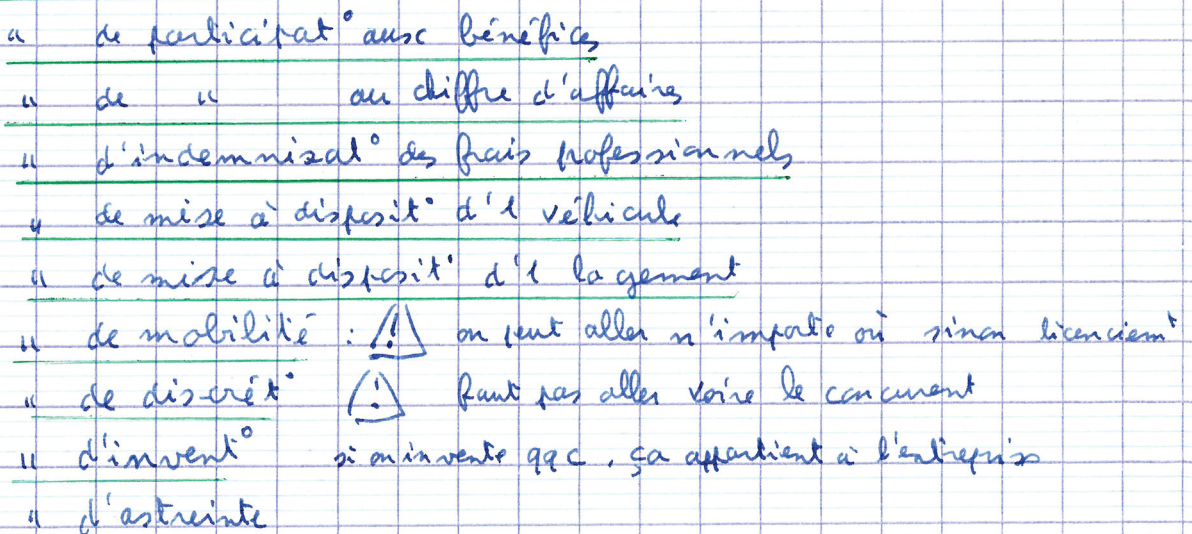 " de participat° aux bénéfices
" de " au chiffre d'affaires
" d'indemnisat° des frais professionnels
" de mise à disposit° d'1 véhicule
" de mise à disposit° d'1 logement
" de mobilité : ⚠ on peut aller n'importe où sinon licenciemt
" de discrét° ⚠ faut pas aller voire le concurent
" d'invent° si on invente qqc, ça appartient à l'entreprise
" d'astreinte